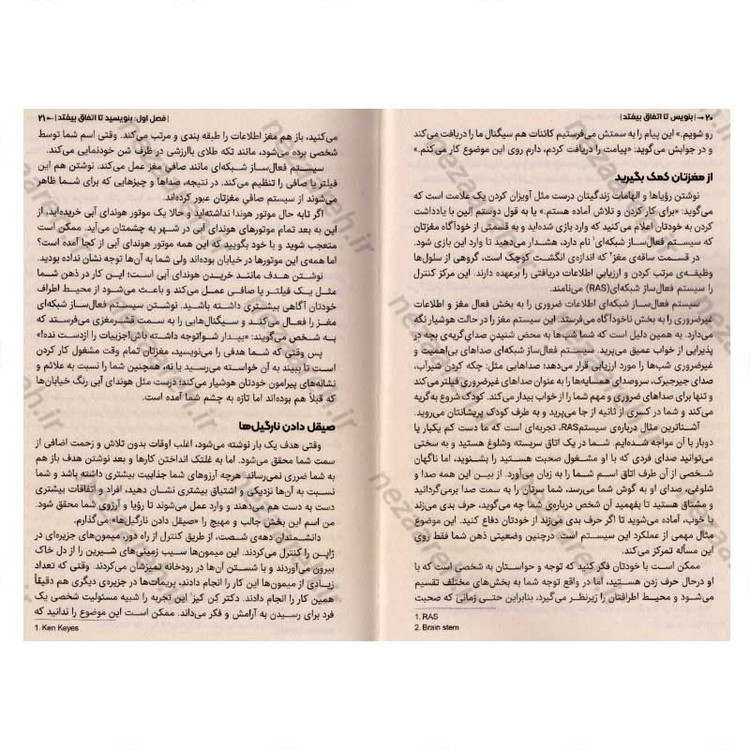 ۲۰ → | بنویس تا اتفاق بیفتد |
رو شویم.» این پیام را به سمتش می‌فرستیم کائنات هم سیگنال ما را دریافت می‌کند
و در جوابش می‌گوید: «پیامت را دریافت کردم، دارم روی این موضوع کار می‌کنم.»
از مغزتان کمک بگیرید
نوشتن رؤیاها و الهامات زندگیتان درست مثل آویزان کردن یک علامت است که
می‌گوید: «برای کار کردن و تلاش آماده هستم.» یا به قول دوستم اِلین با یادداشت
کردن به خودتان اعلام می‌کنید که وارد بازی شده‌اید و به قسمتی از خودآگاه مغزتان
که سیستم فعال‌ساز شبکه‌ای۱ نام دارد، هشدار می‌دهید تا وارد این بازی شود.
در قسمت ساقه‌ی مغز۲ که اندازه‌ی انگشت کوچک است، گروهی از سلول‌ها
وظیفه‌ی مرتب کردن و ارزیابی اطلاعات دریافتی را برعهده دارند. این مرکز کنترل
را سیستم فعال‌ساز شبکه‌ای (RAS) می‌نامند.
سیستم فعال‌ساز شبکه‌ای اطلاعات ضروری را به بخش فعال مغز و اطلاعات
غیرضروری را به بخش ناخودآگاه می‌فرستد. این سیستم مغز را در حالت هوشیار نگه
می‌دارد. به همین دلیل است که شما شب‌ها به محض شنیدن صدای گریه‌ی بچه در
پذیرایی از خواب عمیق می‌پرید. سیستم فعال‌ساز شبکه‌ای صداهای بی‌اهمیت و
غیرضروری شب‌ها را مورد ارزیابی قرار می‌دهد؛ صداهایی مثل: چکه کردن شیرآب،
صدای جیرجیرک، سروصدای همسایه‌ها را به عنوان صداهای غیرضروری فیلتر می‌کند
و تنها برای صداهای ضروری و مهم شما را از خواب بیدار می‌کند. کودک شروع به گریه
می‌کند و شما در کسری از ثانیه از جا می‌پرید و به طرف کودک پریشانتان می‌روید.
آشناترین مثال درباره‌ی سیستم RAS، تجربه‌ای است که ما دست کم یکبار یا
دوبار با آن مواجه شده‌ایم. شما در یک اتاق سربسته وشلوغ هستید و به سختی
می‌توانید صدای فردی که با او مشغول صحبت هستید را بشنوید، اما ناگهان
شخصی از آن طرف اتاق اسم شما را به زبان می‌آورد. از بین این همه صدا و
شلوغی، صدای او به گوش شما می‌رسد، شما سرتان را به سمت صدا برمی‌گردانید
و مشتاق هستید تا بفهمید آن شخص درباره‌ی شما چه می‌گوید، حرف بدی می‌زند
یا خوب، آماده می‌شوید تا اگر حرف بدی می‌زند از خودتان دفاع کنید. این موضوع
مثال مهمی از عملکرد این سیستم است. درچنین وضعیتی ذهن شما فقط روی
این مسأله تمرکز می‌کند.
ممکن است با خودتان فکر کنید که توجه و حواستان به شخصی است که با
او درحال حرف زدن هستید، اما در واقع توجه شما به بخش‌های مختلف تقسیم
می‌شود و محیط اطرافتان را زیرنظر می‌گیرد، بنابراین حتی زمانی که صحبت
1. RAS
2. Brain stem
| فصل اول: بنویسید تا اتفاق بیفتد | ← ۲۱
می‌کنید، باز هم مغز اطلاعات را طبقه بندی و مرتب می‌کند. وقتی اسم شما توسط
شخصی برده می‌شود، مانند تکه طلای باارزشی در ظرف شن خودنمایی می‌کند.
سیستم فعال‌ساز شبکه‌ای مانند صافی مغز عمل می‌کند. نوشتن هم این
فیلتر یا صافی را تنظیم می‌کند. در نتیجه، صداها و چیزهایی که برای شما ظاهر
می‌شوند از سیستم صافی مغزتان عبور کرده‌اند.
اگر تابه حال موتور هوندا نداشته‌اید و حالا یک موتور هوندای آبی خریده‌اید، از
این به بعد تمام موتورهای هوندای آبی در شهر به چشمتان می‌آید. ممکن است
متعجب شوید و با خود بگویید که این همه موتور هوندای آبی از کجا آمده است؟
اما همه‌ی این موتورها در خیابان بوده‌اند ولی شما به آن‌ها توجه نشان نداده بودید.
نوشتن هدف مانند خریدن هوندای آبی است؛ این کار در ذهن شما
مثل یک فیلتر یا صافی عمل می‌کند و باعث می‌شود از محیط اطراف
خودتان آگاهی بیشتری داشته باشید. نوشتن سیستم فعال‌ساز شبکه‌ای
مغز را فعال می‌کند و سیگنال‌هایی را به سمت قشرمغزی می‌فرستد که
به شخص می‌گویند: «بیدار شو!توجه داشته باش!جزییات را ازدست نده!»
پس وقتی که شما هدفی را می‌نویسید، مغزتان تمام وقت مشغول کار کردن
است تا ببیند به آن خواسته می‌رسید یا نه، همچنین شما را نسبت به علائم و
نشانه‌های پیرامون خودتان هوشیار می‌کند؛ درست مثل هوندای آبی رنگ خیابان‌ها
که قبلاً هم بوده‌اند اما تازه به چشم شما آمده است.
صیقل دادن نارگیل‌ها
وقتی هدف یک بار نوشته می‌شود، اغلب اوقات بدون تلاش و زحمت اضافی از
سمت شما محقق می‌شود. اما به غلتک انداختن کارها و بعد نوشتن هدف باز هم
به شما ضرری نمی‌رساند؛ هرچه آرزوهای شما جذابیت بیشتری داشته باشد و شما
نسبت به آن‌ها نزدیکی و اشتیاق بیشتری نشان دهید، افراد و اتفاقات بیشتری
دست به دست هم می‌دهند و وارد عمل می‌شوند تا رؤیا و آرزوی شما محقق شود.
من اسم این بخش جالب و مهیج را «صیقل دادن نارگیل‌ها» می‌گذارم.
دانشمندان دهه‌ی شصت، از طریق کنترل از راه دور، میمون‌های جزیره‌ای در
ژاپن را کنترل می‌کردند. این میمون‌ها سیب زمینی‌های شیرین را از دل خاک
بیرون می‌آوردند و با شستن آن‌ها در رودخانه تمیزشان می‌کردند. وقتی که تعداد
زیادی از میمون‌ها این کار را انجام دادند، پریمات‌ها در جزیره‌ی دیگری هم دقیقاً
همین کار را انجام دادند. دکتر کِن کیز۱ این تجربه را شبیه مسئولیت شخصی یک
فرد برای رسیدن به آرامش و فکر می‌داند. ممکن است این موضوع را ندانید که
1. Ken Keyes